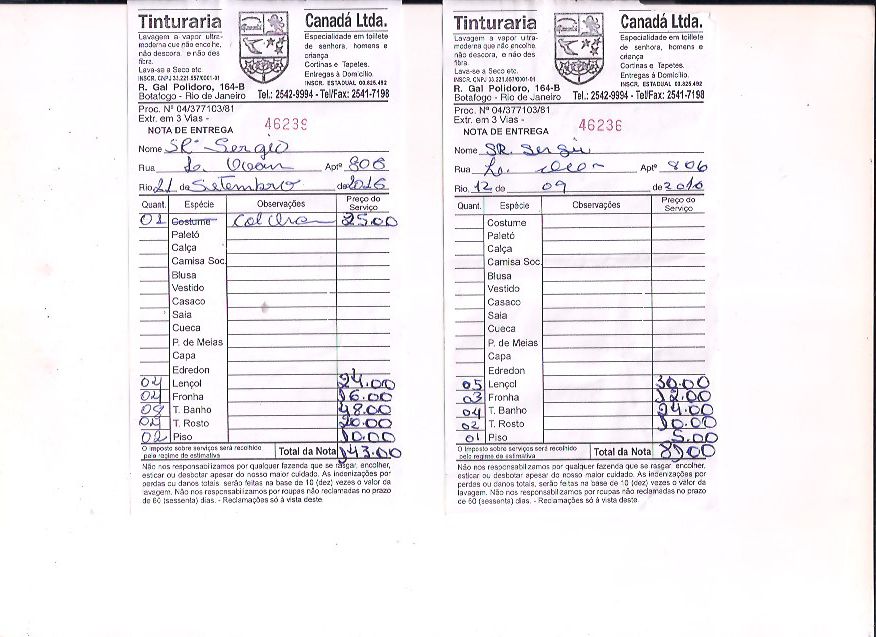 Tinturaria Canadá Ltda.
Lavagem a vapor ultra-
moderna que não encolhe,
não descora, e não des
fibra.
Lava-se a Seco etc.
INSCR. CNPJ 33.221.557/0001-01
Especialidade em toilete
de senhora, homens e
criança
Cortinas e Tapetes.
Entregas à Domicílio.
INSCR. ESTADUAL 00.825.492
R. Gal Polidoro, 164-B
Botafogo - Rio de Janeiro Tel.: 2542-9994 - Tel/Fax: 2541-7198
Proc. Nº 04/377103/81
Extr. em 3 Vias -
NOTA DE ENTREGA 46239
Nome SR. Sergio
Rua Aptº 806
Rio, 21 de Setembro de 2016
Quant. Espécie Observações Preço do Serviço
01 Costume 25.00
Paletó
Calça
Camisa Soc.
Blusa
Vestido
Casaco
Saia
Cueca
P. de Meias
Capa
Edredon
04 Lençol 24.00
04 Fronha 16.00
08 T. Banho 48.00
T. Rosto 20.00
02 Piso 10.00
O Imposto sobre serviços será recolhido
pelo regime de estimativa Total da Nota 143.00
Não nos responsabilizamos por qualquer fazenda que se rasgar, encolher,
esticar ou desbotar apesar do nosso maior cuidado. As indenizações por
perdas ou danos totais, serão feitas na base de 10 (dez) vezes o valor da
lavagem. Não nos responsabilizamos por roupas não reclamadas no prazo
de 60 (sessenta) dias. - Reclamações só à vista deste.
Tinturaria Canadá Ltda.
Lavagem a vapor ultra-
moderna que não encolhe,
não descora, e não des
fibra.
Lava-se a Seco etc.
INSCR. CNPJ 33.221.557/0001-01
Especialidade em toilete
de senhora, homens e
criança
Cortinas e Tapetes.
Entregas à Domicílio.
INSCR. ESTADUAL 00.825.492
R. Gal Polidoro, 164-B
Botafogo - Rio de Janeiro Tel.: 2542-9994 - Tel/Fax: 2541-7198
Proc. Nº 04/377103/81
Extr. em 3 Vias -
NOTA DE ENTREGA 46236
Nome SR. Sergio
Rua Aptº 806
Rio, 12 de 09 de 2016
Quant. Espécie Observações Preço do Serviço
Costume
Paletó
Calça
Camisa Soc.
Blusa
Vestido
Casaco
Saia
Cueca
P. de Meias
Capa
Edredon
05 Lençol 30.00
03 Fronha 12.00
04 T. Banho 24.00
02 T. Rosto 10.00
01 Piso 5.00
O Imposto sobre serviços será recolhido
pelo regime de estimativa Total da Nota
Não nos responsabilizamos por qualquer fazenda que se rasgar, encolher,
esticar ou desbotar apesar do nosso maior cuidado. As indenizações por
perdas ou danos totais, serão feitas na base de 10 (dez) vezes o valor da
lavagem. Não nos responsabilizamos por roupas não reclamadas no prazo
de 60 (sessenta) dias. - Reclamações só à vista deste.